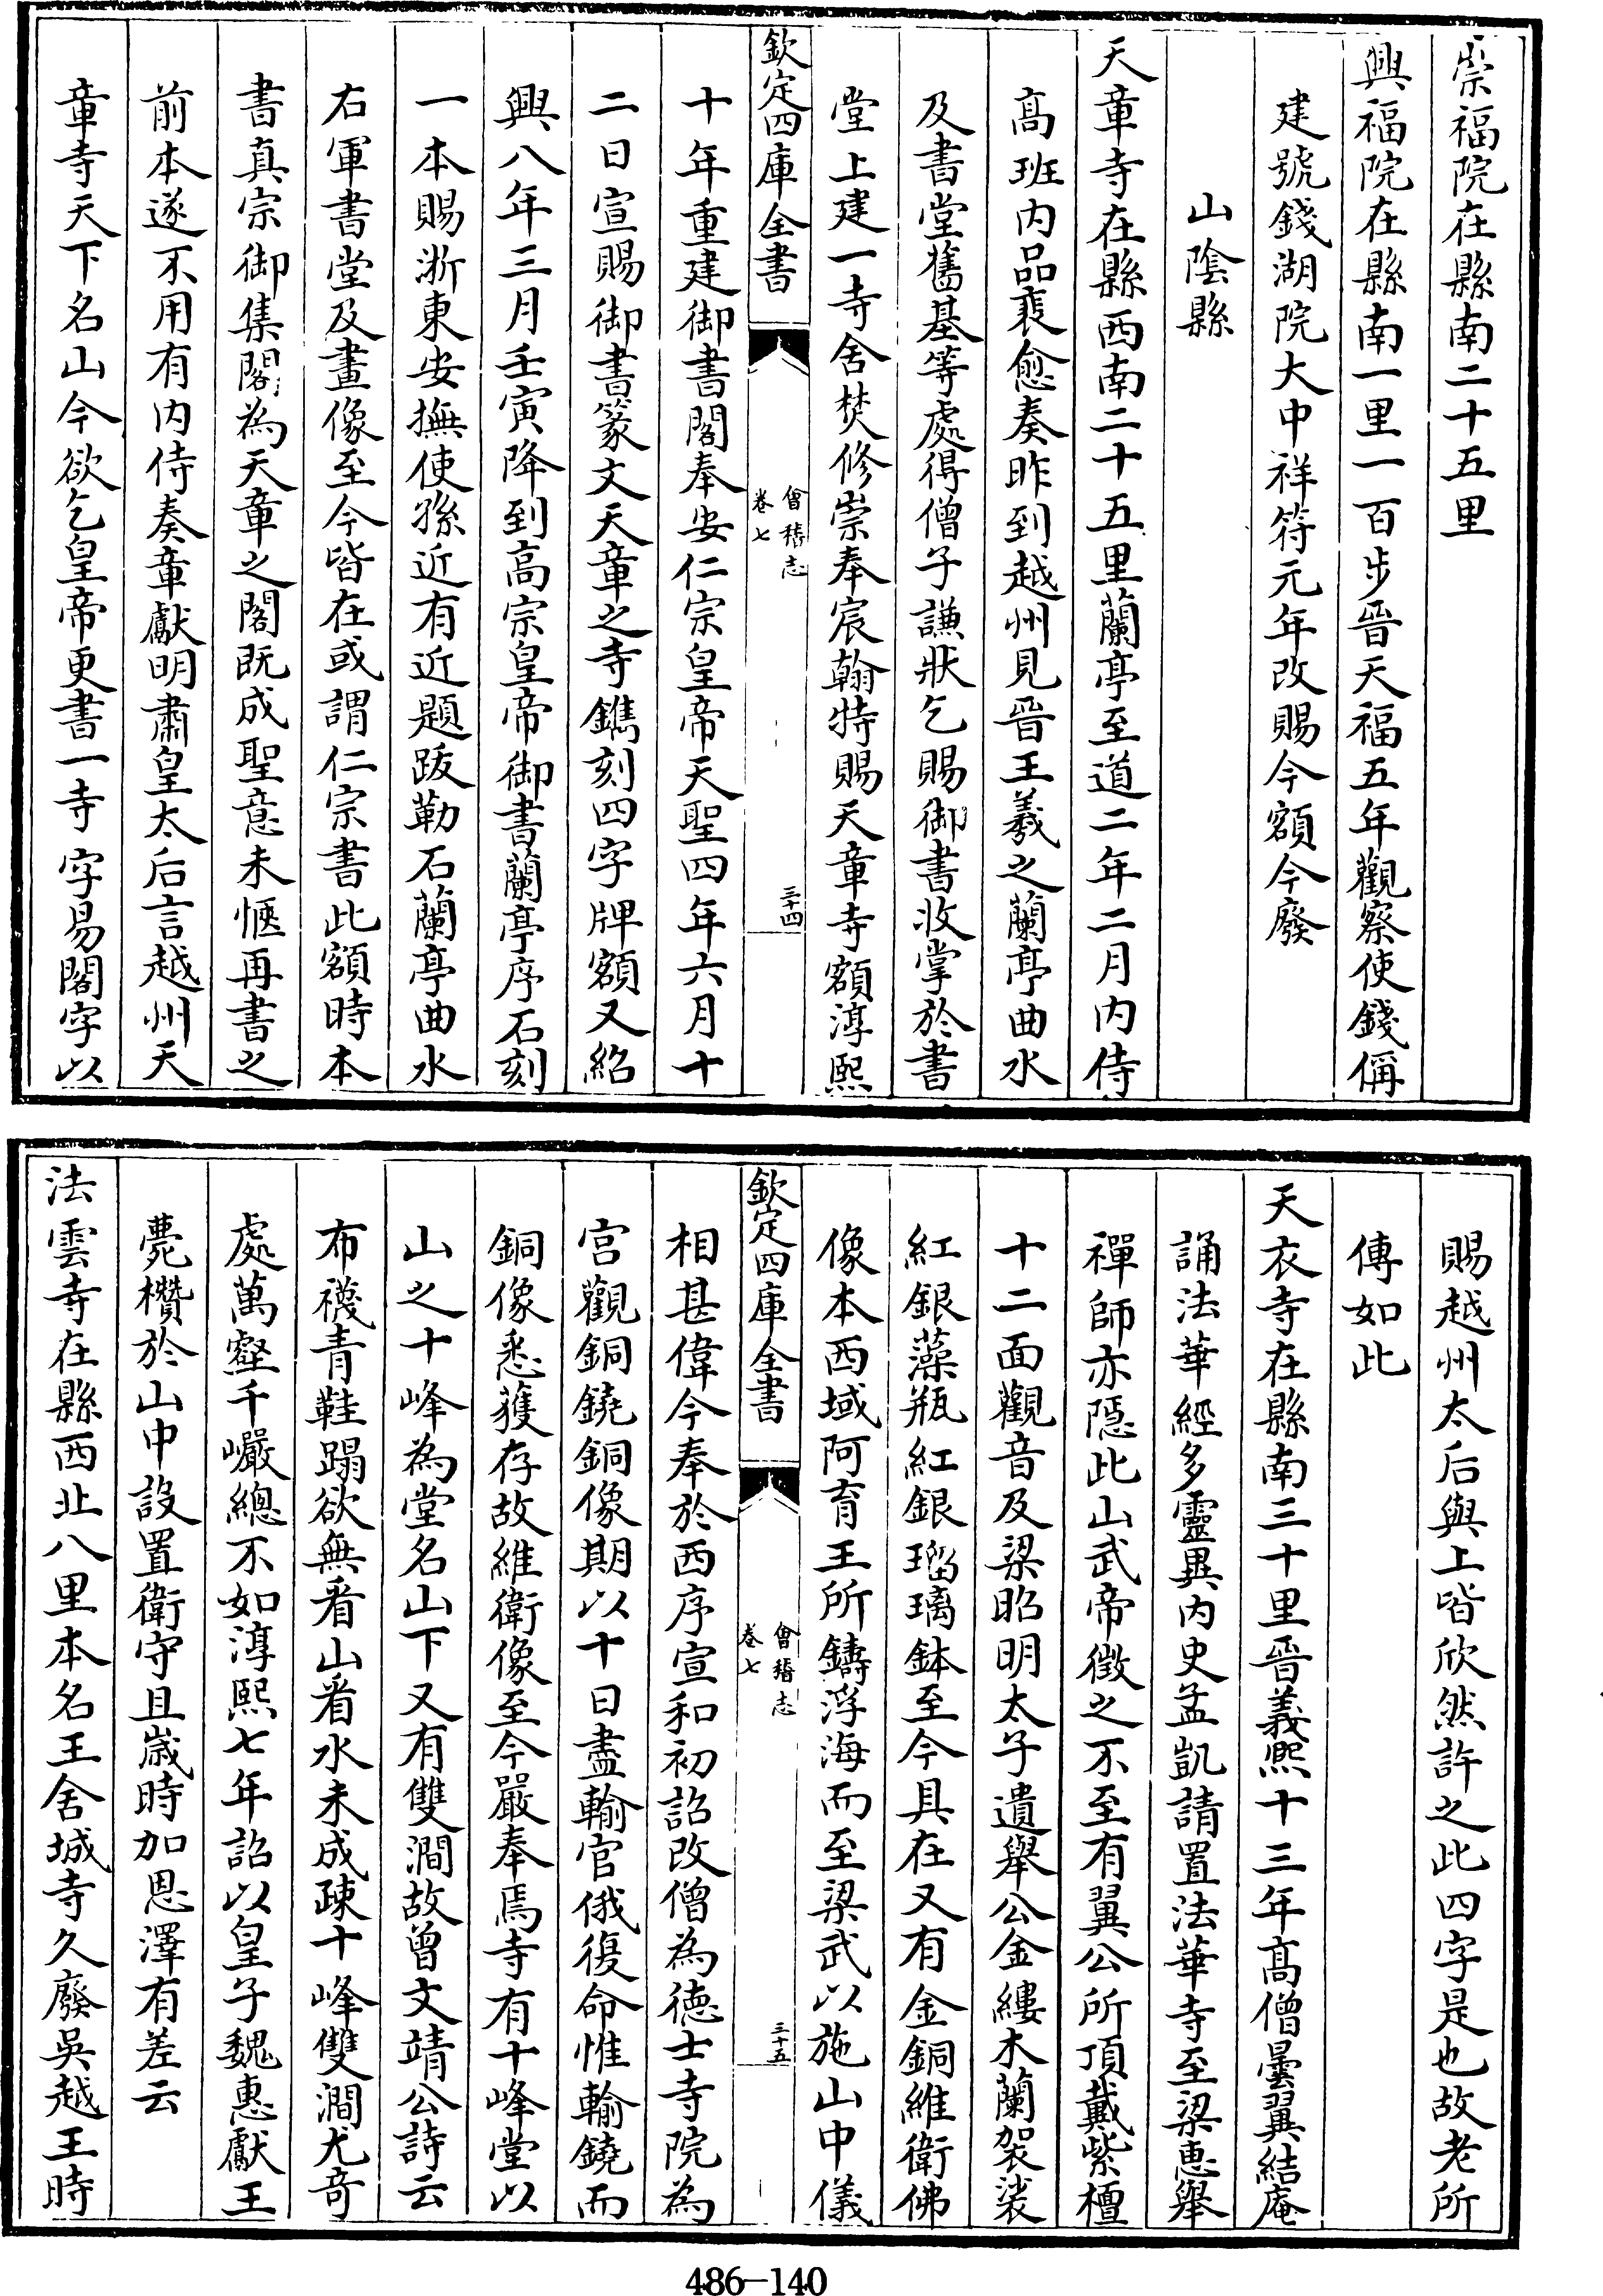 崇福院在縣南二十五里
興福院在縣南一里一百步晉天福五年觀察使錢偁
建號錢湖院大中祥符元年改賜今額今廢
山陰縣
天章寺在縣西南二十五里蘭亭至道二年二月內侍
高班內品裴愈奏昨到越州見晉王羲之蘭亭曲水
及書堂舊基等處得僧子謙狀乞賜御書收掌於書
堂上建一寺舍焚修崇奉宸翰特賜天章寺額淳熙
欽定四庫全書
會稽志
卷七
三十四
十年重建御書閣奉安仁宗皇帝天聖四年六月十
二日宣賜御書篆文天章之寺鐫刻四字牌額又紹
興八年三月壬寅降到高宗皇帝御書蘭亭序石刻
一本賜浙東安撫使孫近有近題跋勒石蘭亭曲水
右軍書堂及畫像至今皆在或謂仁宗書此額時本
書真宗御集閣為天章之閣既成聖意未愜再書之
前本遂不用有內侍奏章獻明肅皇太后言越州天
章寺天下名山今欲乞皇帝更書一寺字易閣字以
賜越州太后與上皆欣然許之此四字是也故老所
傳如此
天衣寺在縣南三十里晉義熙十三年高僧曇翼結庵
誦法華經多靈異內史孟凱請置法華寺至梁惠舉
禪師亦隱此山武帝徵之不至有翼公所頂戴紫檀
十二面觀音及梁昭明太子遺舉公金縷木蘭袈裟
紅銀藻瓶紅銀瑠璃鉢至今具在又有金銅維衛佛
像本西域阿育王所鑄浮海而至梁武以施山中儀
欽定四庫全書
會稽志
卷七
三十五
相甚偉今奉於西序宣和初詔改僧為德士寺院為
宮觀銅鐃銅像期以十日盡輸官俄復命惟輸鐃而
銅像悉獲存故維衛像至今嚴奉焉寺有十峰堂以
山之十峰為堂名山下又有雙澗故曾文靖公詩云
布襪青鞋蹋欲無看山看水未成疎十峰雙澗尤奇
處萬壑千巗總不如淳熙七年詔以皇子魏惠獻王
薨欑於山中設置衛守且歲時加恩澤有差云
法雲寺在縣西北八里本名王舍城寺久廢吳越王時
486-140